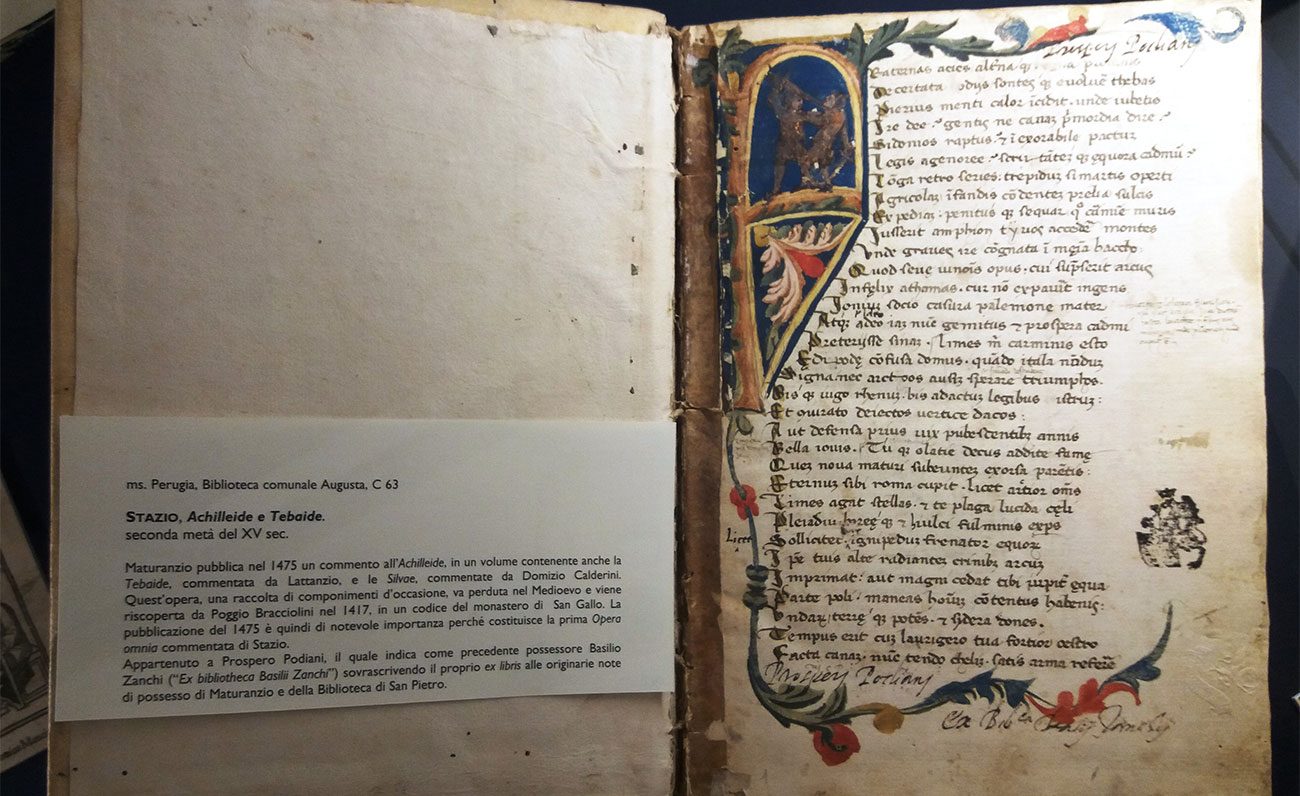 ms. Perugia, Biblioteca comunale Augusta, C 63
STAZIO, Achilleide e Tebaide.
seconda metà del XV sec.
Maturanzio pubblica nel 1475 un commento all'Achilleide, in un volume contenente anche la
Tebaide, commentata da Lattanzio, e le Silvae, commentate da Domizio Calderini.
Quest'opera, una raccolta di componimenti d'occasione, va perduta nel Medioevo e viene
riscoperta da Poggio Bracciolini nel 1417, in un codice del monastero di San Gallo. La
pubblicazione del 1475 è quindi di notevole importanza perché costituisce la prima Opera
omnia commentata di Stazio.
Appartenuto a Prospero Podiani, il quale indica come precedente possessore Basilio
Zanchi ("Ex bibliotheca Basilii Zanchi") sovrascrivendo il proprio ex libris alle originarie note
di possesso di Maturanzio e della Biblioteca di San Pietro.
Podianj
Fraternas acies altna qƷ
Decertata odijs sontes qƷ euoluē thebas
Pierius menti calor īcidit. unde iubetis
Ire dee. gentis ne canaƷ pmordia dire
Sidonios raptus. & īexorabile pactuƷ
Legis agenoree. scrutāteƷ qƷ equora cadmū
Lōga retro series. trepiduƷ si martis operti
AgricolaƷ īfandis cōdenteƷ prelia sulcis
ExpediaƷ. penitus qƷ sequar q° cāmīe muris
Iusserit amphion tyrios accedē montes
Vnde graues ire cōgnata ī mēīa baccho
Quod seuę iunonis opus. cui sūpserit arcus
Infęlix athamas. cur nō expauīt ingens
IoniuƷ socio casura palemone mater
AtqƷ adeo iaƷ nūc gemitus & prospera cadmi
Preterijsse sinaƷ. limes m carminis esto
Edipodę cōfusa domus. quādo itala nōduƷ
Signa nec arctoos ausiƷ sperare triumphos.
Bis qƷ iugo rhenuƷ. bis adactuƷ legibus istruƷ:
Et coniurato deiectos uertice dacos:
Aut defensa prius uix pubescentibƷ annis
Bella iouis. Tu qƷ o latie decus addite famę
QueƷ noua maturi subeunteƷ exorsa parētis:
EternuƷ sibi roma cupit. licet artior om̄s
Limes agat stellas. & te plaga lucida cęli
PleiadiuƷ boreę qƷ & hiulci fulminis exps
Sollicitet. ignipeduƷ frenator equoƷ
Ipse tuis alte radianteƷ crinibus arcuƷ
Imprimat: aut magni cedat tibi iupiter ęqua
Parte poli. maneas hoīuƷ cōtentus habenis:
VndaƷ terrę qƷ potēs. & sydera dones.
Tempus erit cuƷ laurigero tua fortior oestro
Facta canaƷ. nūc tendo chelyn. satis arma referre
Licet
Podianj
Ex Bibca